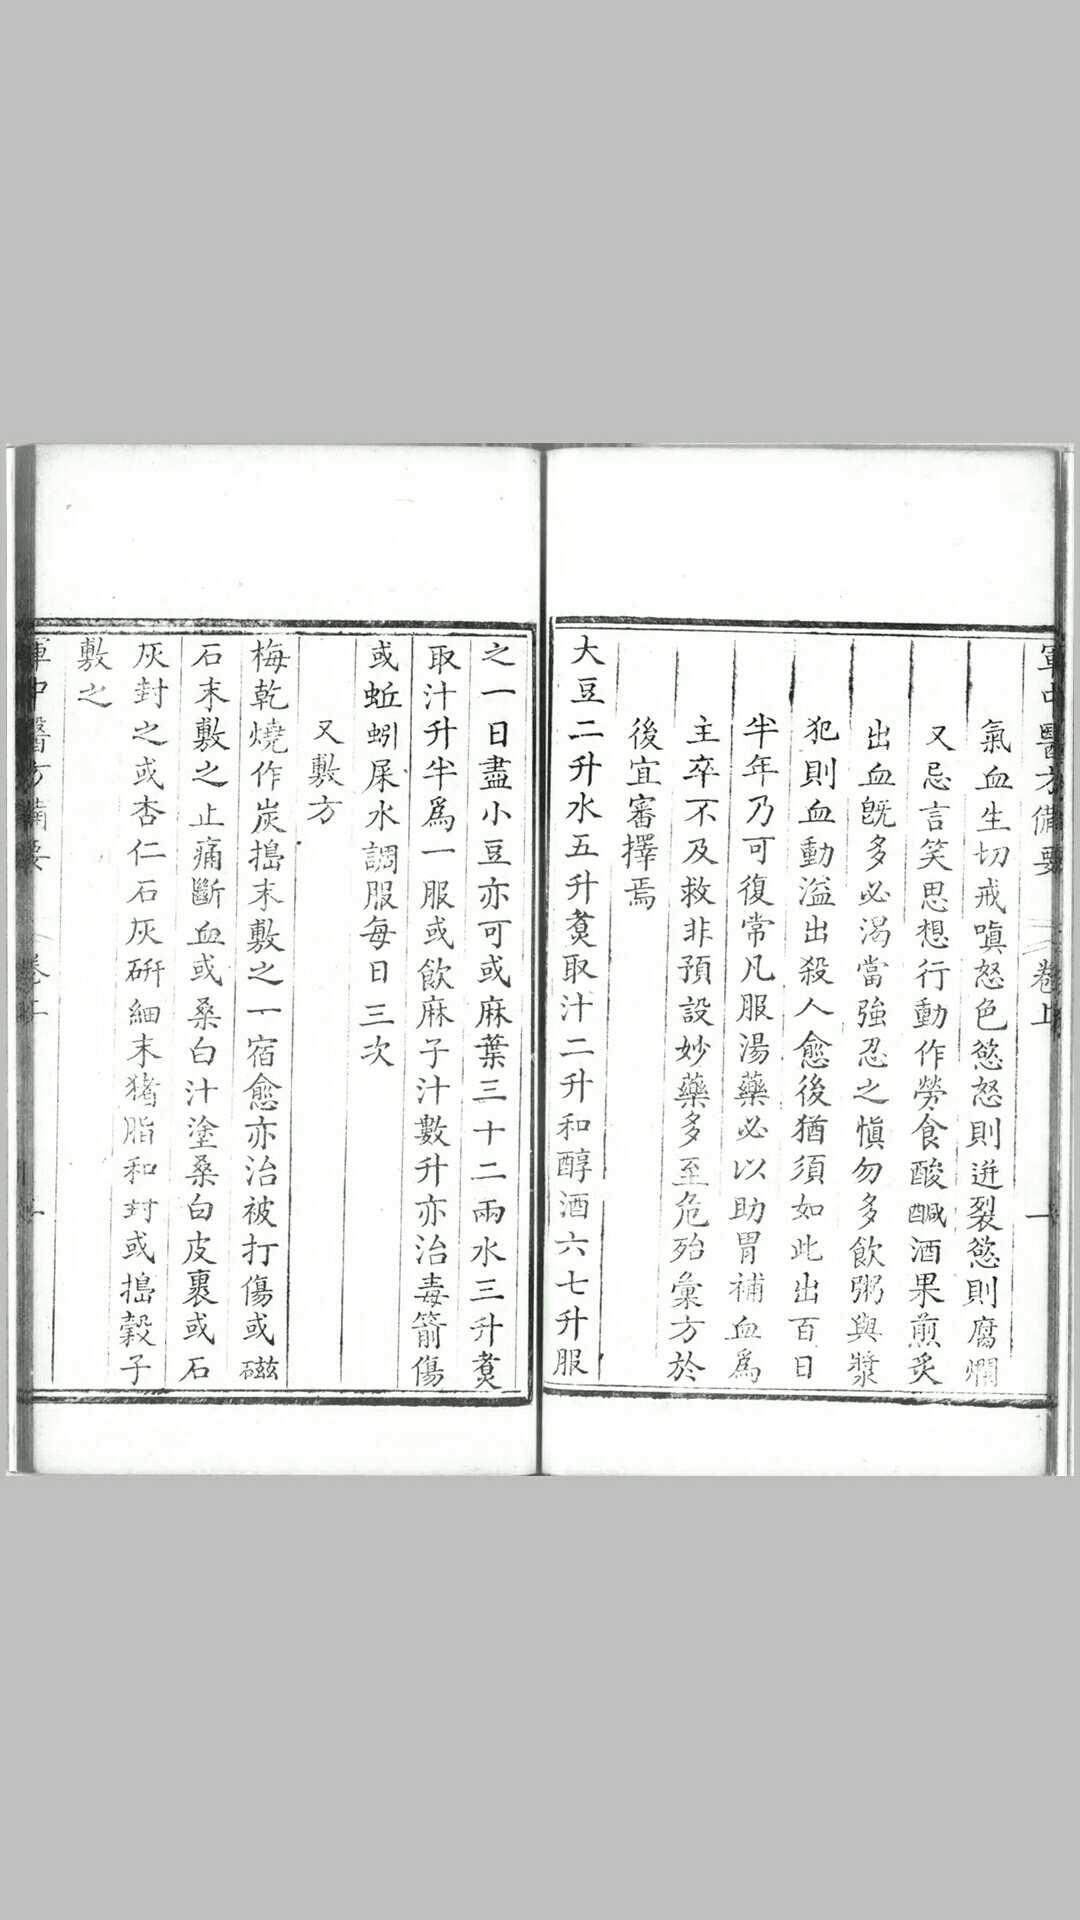 軍中醫方備要 卷上 一
氣血生切戒嗔怒色慾怒則迸裂慾則腐爛
又忌言笑思想行動作勞食酸鹹酒果煎炙
出血旣多必渴當強忍之愼勿多飲粥與漿
犯則血動溢出殺人愈後猶須如此出百日
半年乃可復常凡服湯藥必以助胃補血爲
主卒不及救非預設妙藥多至危殆彙方於
後宜審擇焉
大豆二升水五升煑取汁二升和醇酒六七升服
之一日盡小豆亦可或麻葉三十二兩水三升煑
取汁升半爲一服或飲麻子汁數升亦治毒箭傷
或蚯蚓屎水調服每日三次
又敷方
梅乾燒作炭搗末敷之一宿愈亦治被打傷或磁
石末敷之止痛斷血或桑白汁塗桑白皮裹或石
灰封之或杏仁石灰硏細末猪脂和封或搗穀子
敷之
軍中醫方備要 卷上